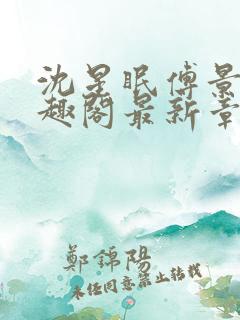 沈星眠傅景
趣阁最新章
鄭錦陽
未经同意禁止转载